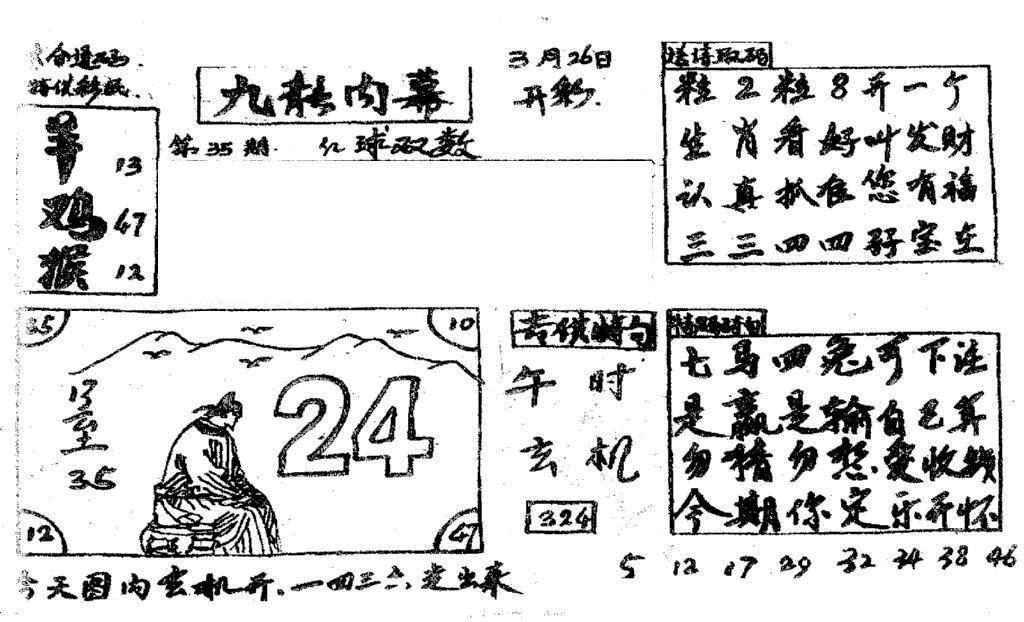 九龙内幕
3月26日
开彩.
第35期 红球双数
羊 13
鸡 47
猴 12
粒2粒8开一个
生肖看好叫发财
认真抓住您有福
三三四四好宝在
35
10
24
13
至
35
12
47
今天图内玄机开.一四三六发出来
午时
玄机
324
七马四兔可下注
是赢是输自己算
勿猜勿愁发收钱
今期你定乐开怀
5 12 17 29 32 34 38 46